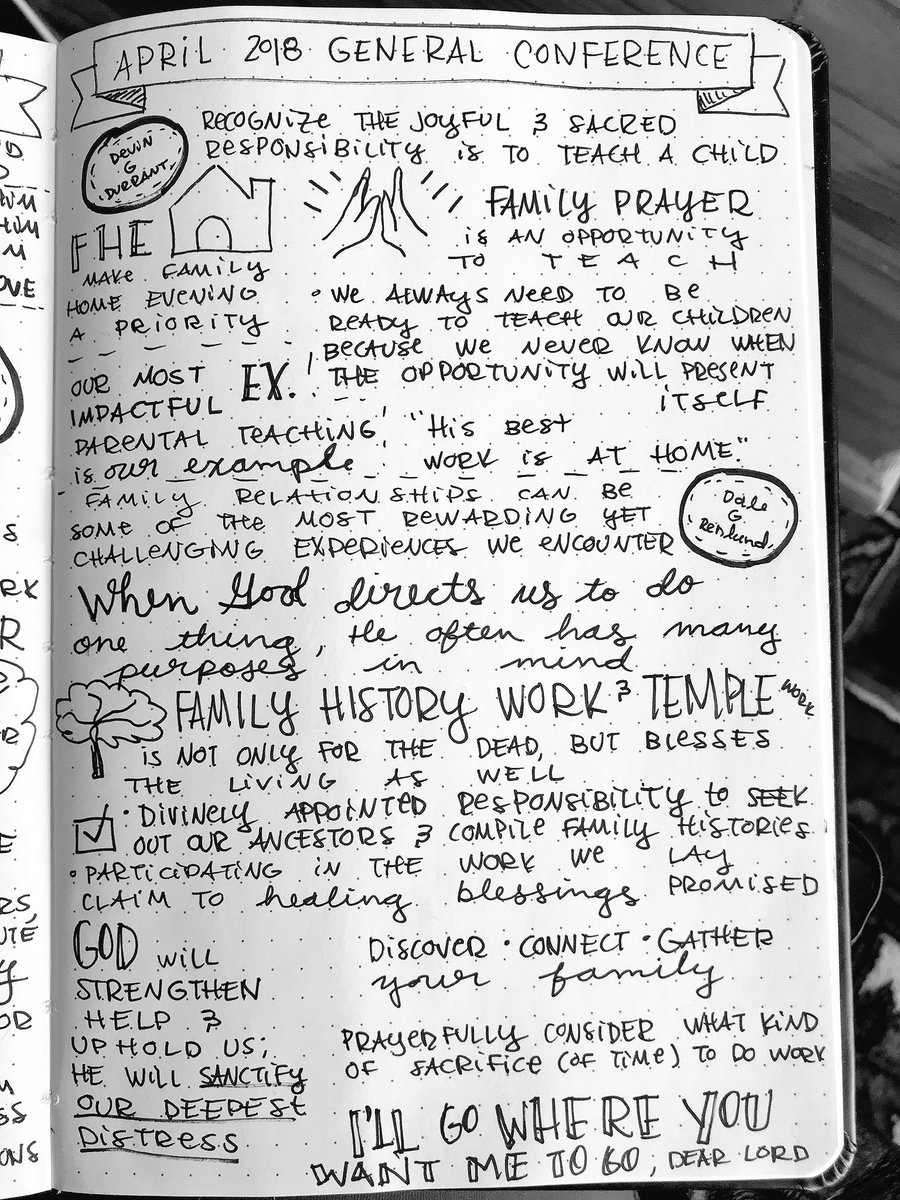 APRIL 2018 GENERAL CONFERENCE
DEVIN
G
DURRANT
RECOGNIZE THE JOYFUL & SACRED
RESPONSIBILITY IS TO TEACH A CHILD
FHE
MAKE FAMILY
HOME EVENING
A PRIORITY
FAMILY PRAYER
IS AN OPPORTUNITY
TO TEACH
• WE ALWAYS NEED TO BE
READY TO TEACH OUR CHILDREN
BECAUSE WE NEVER KNOW WHEN
THE OPPORTUNITY WILL PRESENT
ITSELF
OUR MOST EX.
IMPACTFUL
PARENTAL TEACHING
is our example
"His BEST
WORK is AT HOME."
FAMILY RELATIONSHIPS CAN BE
SOME OF THE MOST REWARDING YET
CHALLENGING EXPERIENCES WE ENCOUNTER
Dale
G
Renlund
When God directs us to do
one thing, He often has many
purposes in mind
FAMILY HISTORY WORK & TEMPLE WORK
IS NOT ONLY FOR THE DEAD, BUT BLESSES
THE LIVING AS WELL
• DIVINELY APPOINTED RESPONSIBILITY to SEEK
OUT OUR ANCESTORS & COMPILE FAMILY HISTORIES
• PARTICIPATING IN THE WORK WE LAY
CLAIM TO healing blessings PROMISED
GOD WILL
STRENGTHEN
HELP &
UPHOLD US;
HE WILL SANCTIFY
OUR DEEPEST
DISTRESS
DISCOVER • CONNECT • GATHER
your family
PRAYERFULLY CONSIDER WHAT KIND
OF SACRIFICE (OF TIME) TO DO WORK
I'LL GO WHERE YOU
WANT ME TO GO, DEAR LORD